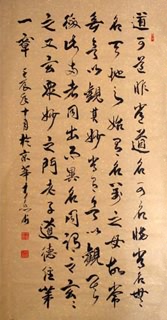 道可道非常道名可名非常名無
名天地之始有名万物之母故常
無欲以觀其妙常有欲以觀其
徼此兩者同出而異名同謂之玄玄
之又玄衆妙之門老子道德經第
一章 壬辰年十月於京華